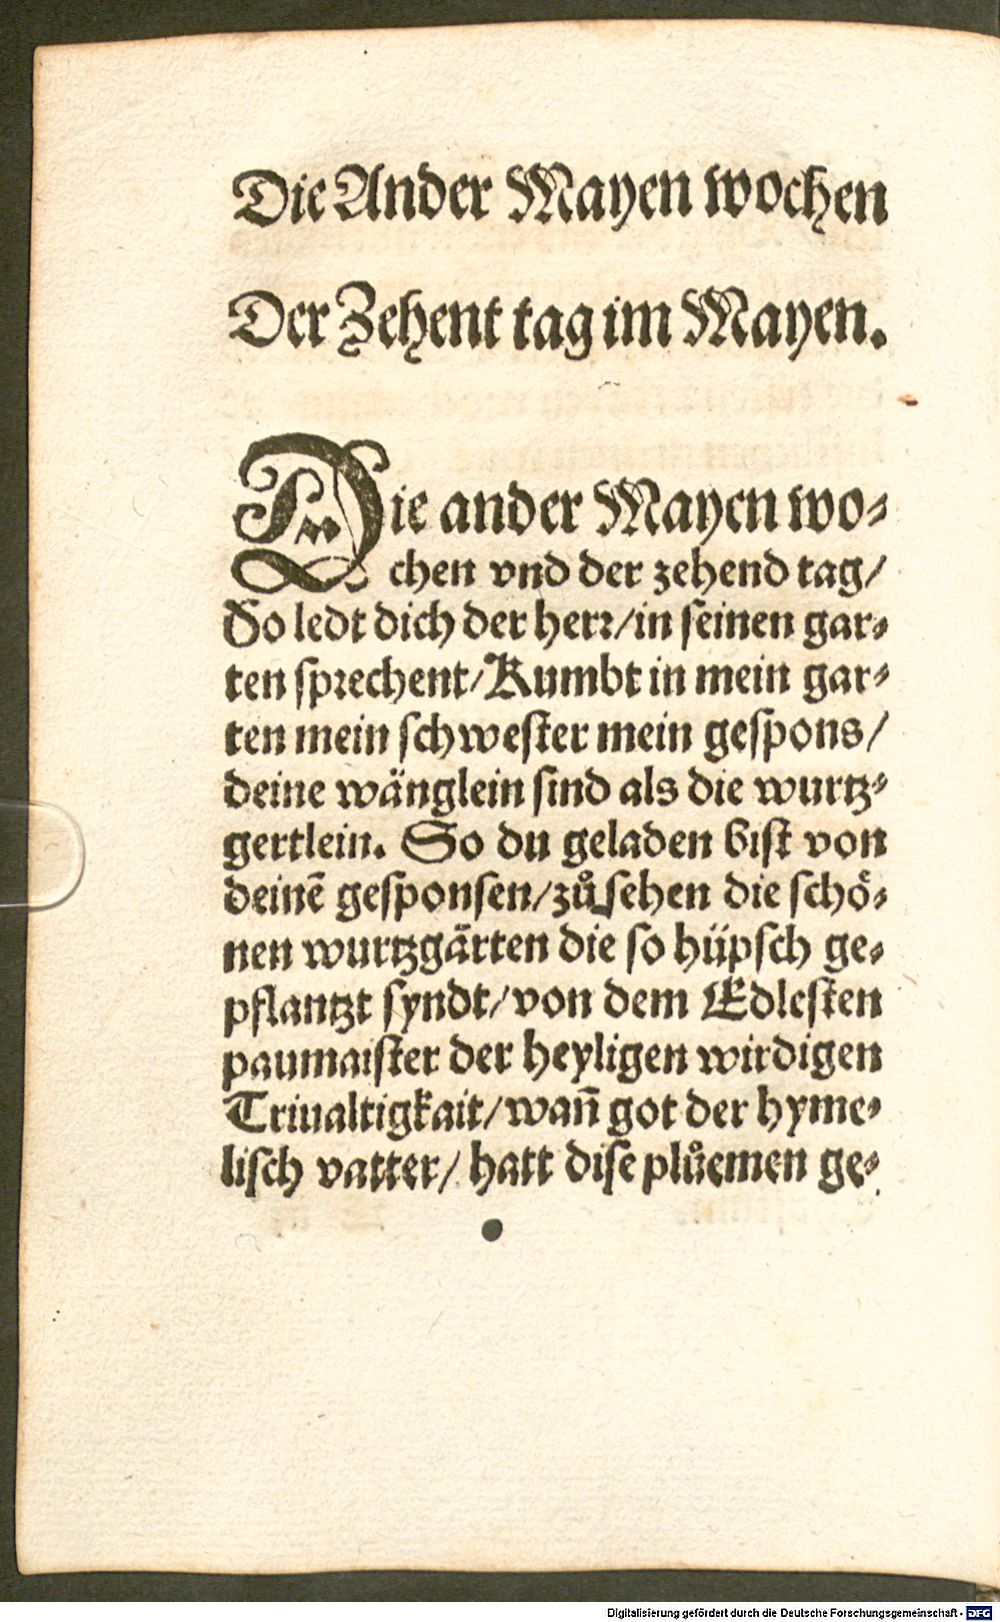 Die Ander Mayen wochen
Der Zehent tag im Mayen.
Die ander Mayen wo⸗
chen vnd der zehend tag/
So ledt dich der herꝛ/in seinen gar⸗
ten spꝛechent/Kumbt in mein gar⸗
ten mein schwester mein gespons/
deine wänglein sind als die wurtz⸗
gertlein. So du geladen bist von
deinē gesponsen/zůsehen die schö⸗
nen wurtzgärten die so hüpsch ge⸗
pflantzt syndt/von dem Edlesten
paumaister der heyligen wirdigen
Triualtigkait/wan̄ got der hyme⸗
lisch vatter/hatt dise plůemen ge⸗
Digitalisierung gefördert durch die Deutsche Forschungsgemeinschaft - DFG